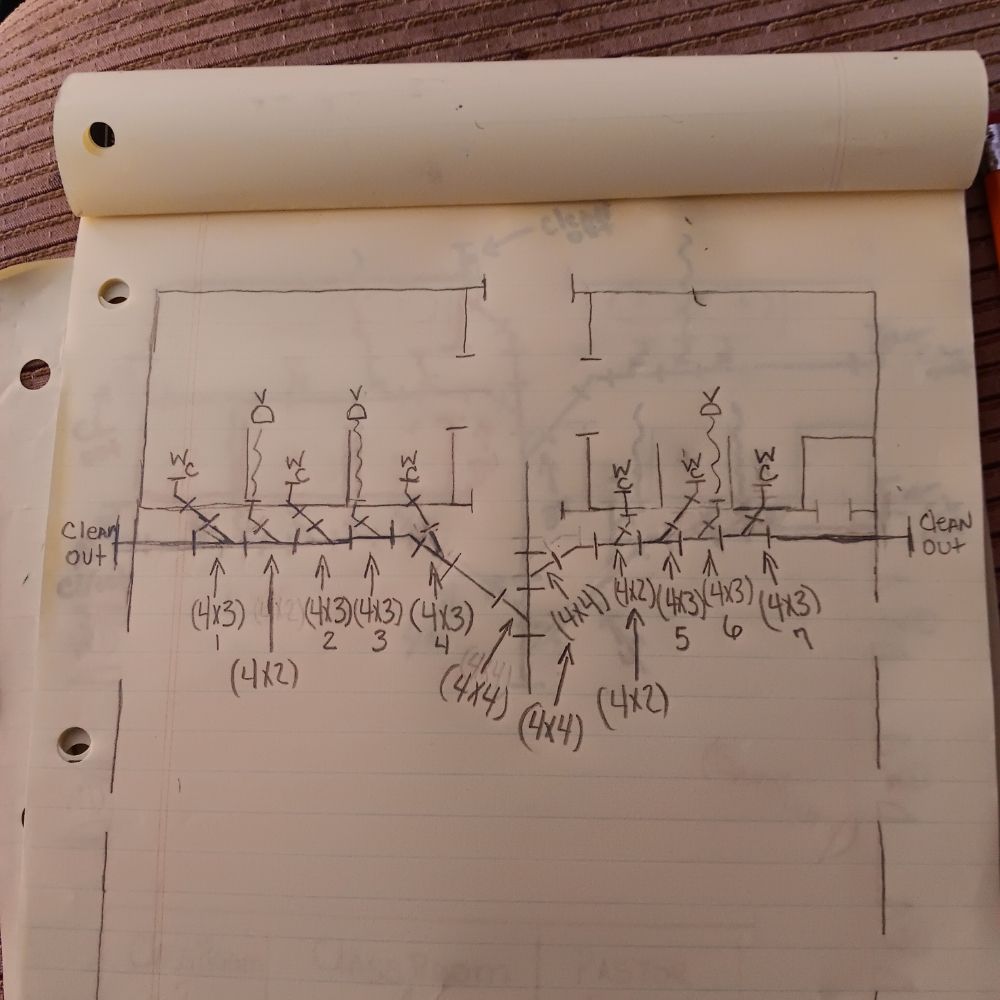 V
V
V
WC
WC
WC
WC
WC
WC
CLEAN
OUT
CLEAN
OUT
(4x3)
1
(4x2)
(4x3)
2
(4x3)
3
(4x3)
4
(4x4)
(4x4)
(4x4)
(4x2)
(4x2)
(4x3)
5
(4x3)
6
(4x3)
7